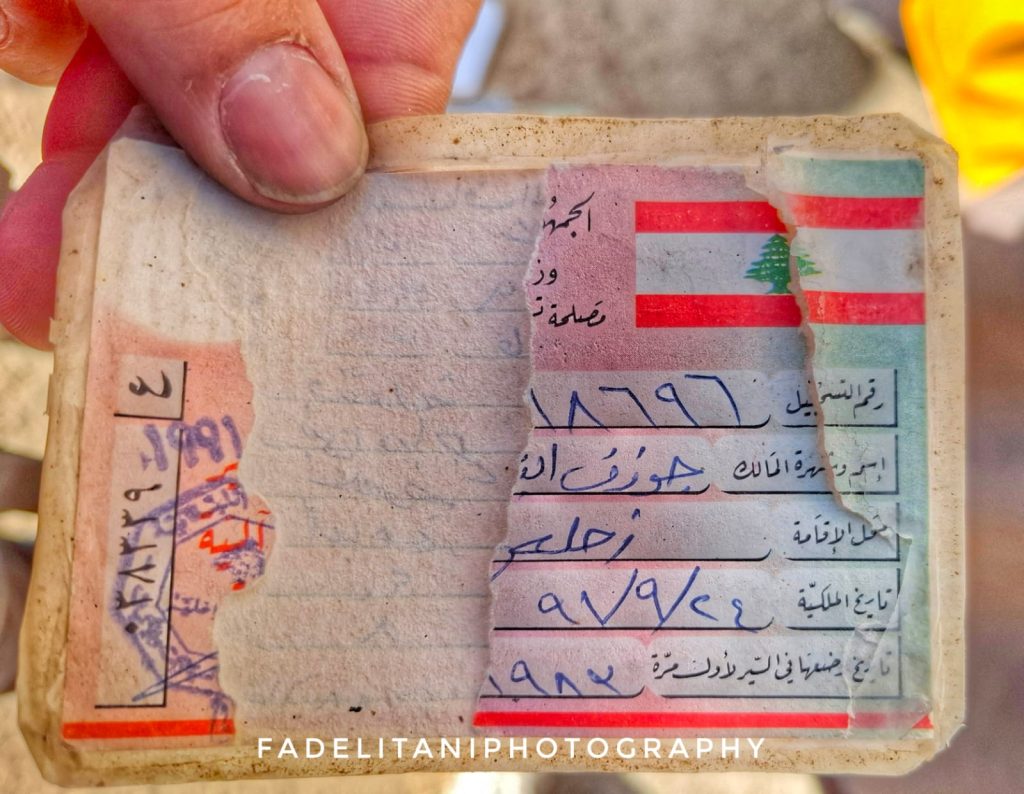 الجمهو
وز
مصلحة ت
رقم التسجيل ١٨٦٩٦
إسم وشهرة المالك جوزف
محل الإقامة زحلة
تاريخ الملكيّة ٩٨/٩/٢٤
تاريخ وضعها في السير لأول مرّة ١٩٨٣
٤
FADELITANIPHOTOGRAPHY